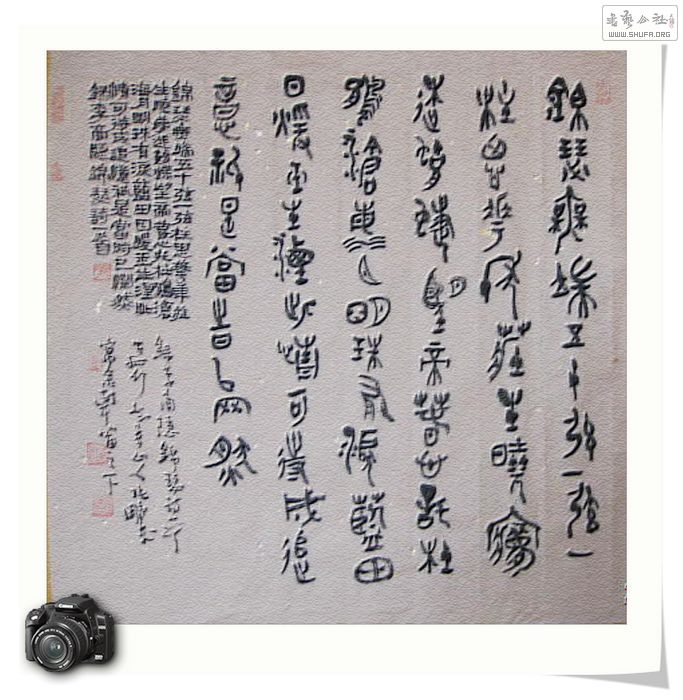 書藝公社
WWW.SHUFA.ORG
錦瑟無端五十弦一弦一
柱思華年莊生曉夢
迷蝴蝶望帝春心託杜
鵑滄海月明珠有淚藍田
日暖玉生煙此情可待成追
憶祇是當時已惘然
錦瑟無端五十弦一弦一柱思華年莊
生曉夢迷蝴蝶望帝春心托杜鵑滄
海月明珠有淚藍田日暖玉生煙此
情可待成追憶祇是當時已惘然
錄李商隱錦瑟詩一首
錄李商隱錦瑟詩一首
Canon